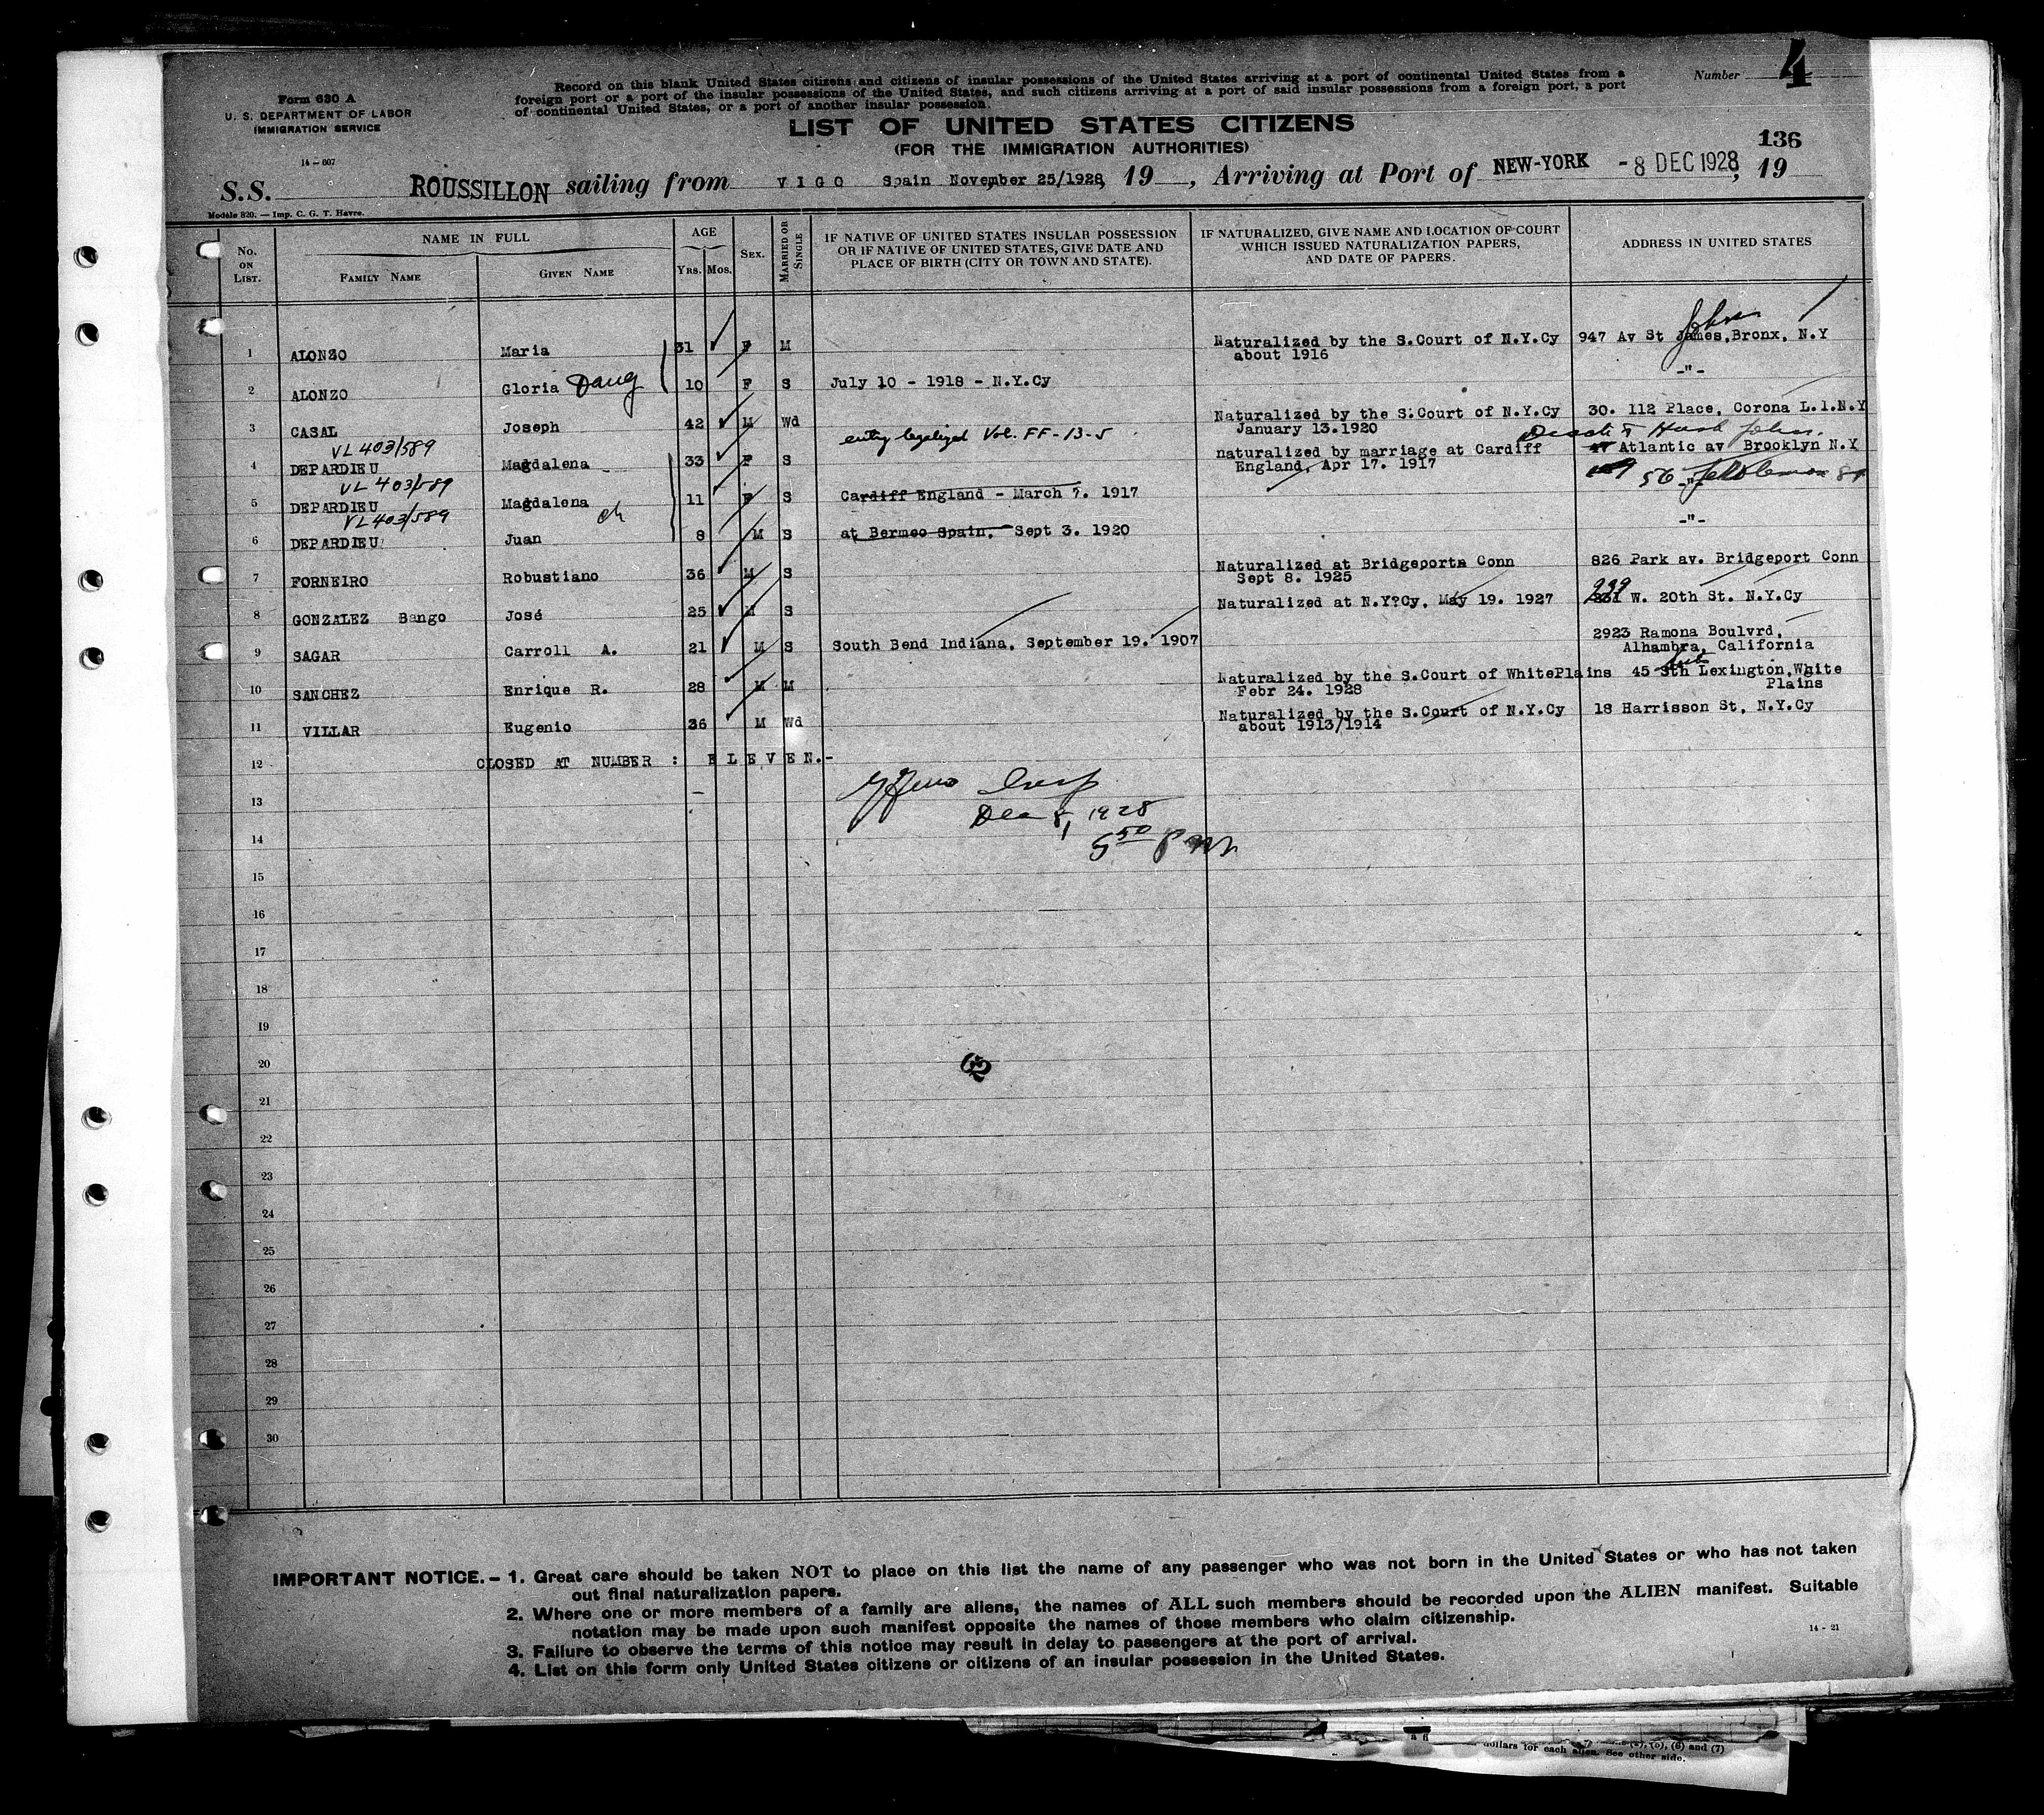 Number 4
Form 630 A
U. S. DEPARTMENT OF LABOR
IMMIGRATION SERVICE
14-607
Record on this blank United States citizens and citizens of insular possessions of the United States arriving at a port of continental United States from a
foreign port or a port of the insular possessions of the United States, and such citizens arriving at a port of said insular possessions from a foreign port, a port
of continental United States, or a port of another insular possession.
LIST OF UNITED STATES CITIZENS
(FOR THE IMMIGRATION AUTHORITIES)
136
S.S. ROUSSILLON sailing from VIGO Spain November 25/1928, 19 , Arriving at Port of NEW-YORK - 8 DEC 1928, 19
Modèle 820. — Imp. C. G. T. Havre.
No. ON LIST.
NAME IN FULL
FAMILY NAME
GIVEN NAME
AGE
YRS. MOS.
SEX.
MARRIED OR SINGLE
IF NATIVE OF UNITED STATES INSULAR POSSESSION
OR IF NATIVE OF UNITED STATES, GIVE DATE AND
PLACE OF BIRTH (CITY OR TOWN AND STATE).
IF NATURALIZED, GIVE NAME AND LOCATION OF COURT
WHICH ISSUED NATURALIZATION PAPERS,
AND DATE OF PAPERS.
ADDRESS IN UNITED STATES
1 ALONZO Maria 31 F M Naturalized by the S.Court of N.Y.Cy 947 Av St James,Bronx, N.Y
about 1916
Johns
2 ALONZO Gloria Daug 10 F S July 10 - 1918 - N.Y.Cy -"-
3 CASAL Joseph 42 M Wd Naturalized by the S.Court of N.Y.Cy 30. 112 Place, Corona L.I.N.Y
January 13.1920
entry legalized Vol. FF-13-5
VL 403/589
4 DEPARDIEU Magdalena 33 F S naturalized by marriage at Cardiff 47 Atlantic av Brooklyn N.Y
England, Apr 17. 1917
Husb John.
56
VL 403/589
5 DEPARDIEU Magdalena 11 F S Cardiff England - March 7. 1917 -"-
VL 403/589
ch
6 DEPARDIEU Juan 8 M S at Bermeo Spain. Sept 3. 1920 -"-
7 FORNEIRO Robustiano 36 M S Naturalized at Bridgeport Conn 826 Park av. Bridgeport Conn
Sept 8. 1925
8 GONZALEZ Bango José 25 M S Naturalized at N.Y?Cy, May 19. 1927 239 W. 20th St. N.Y.Cy
9 SAGAR Carroll A. 21 M S South Bend Indiana, September 19. 1907 2923 Ramona Boulvrd,
Alhambra, California
10 SANCHEZ Enrique R. 28 M M Naturalized by the S.Court of WhitePlains 45 Sth Lexington,White
Febr 24. 1928 Plains
11 VILLAR Eugenio 36 M Wd Naturalized by the S.Court of N.Y.Cy 18 Harrisson St, N.Y.Cy
about 1913/1914
12 CLOSED AT NUMBER : ELEVEN.-
13
Insp
Dec 8, 1928
14
5 50 P M
15
16
17
18
19
20
62
21
22
23
24
25
26
27
28
29
30
IMPORTANT NOTICE. – 1. Great care should be taken NOT to place on this list the name of any passenger who was not born in the United States or who has not taken
out final naturalization papers.
2. Where one or more members of a family are aliens, the names of ALL such members should be recorded upon the ALIEN manifest. Suitable
notation may be made upon such manifest opposite the names of those members who claim citizenship.
3. Failure to observe the terms of this notice may result in delay to passengers at the port of arrival.
4. List on this form only United States citizens or citizens of an insular possession in the United States.
14 - 21
(6) and (7)
dollars for each alien. See other side.